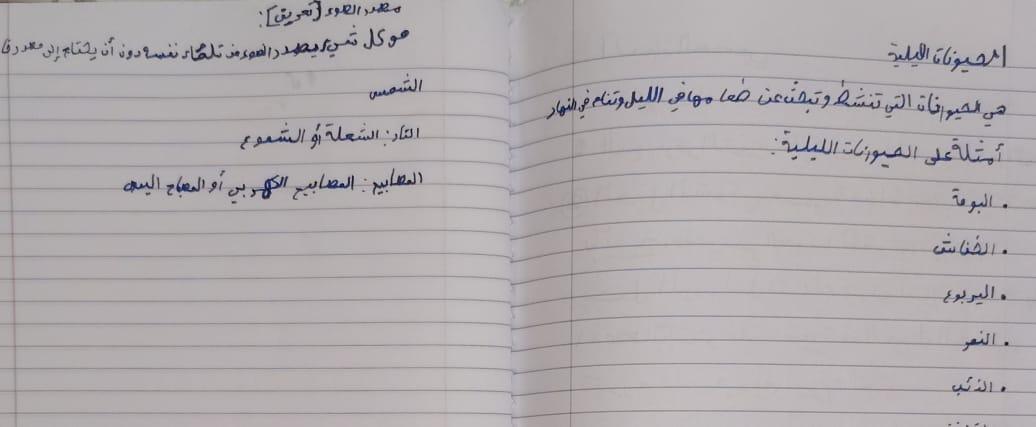 الحيوانات الليلية
هي الحيوانات التي تنشط وتبحث عن طعامها في الليل وتنام في النهار
أمثلة على الحيوانات الليلية:
• البومة
• الخفاش
• اليربوع
• النمر
• الذئب
مصدر الضوء [تعريف]:
هو كل شيء يصدر الضوء من تلقاء نفسه دون أن يحتاج إلى مصدر
الشمس
النار: الشعلة أو الشموع
المصابيح: المصابيح الكهربي أو المصباح